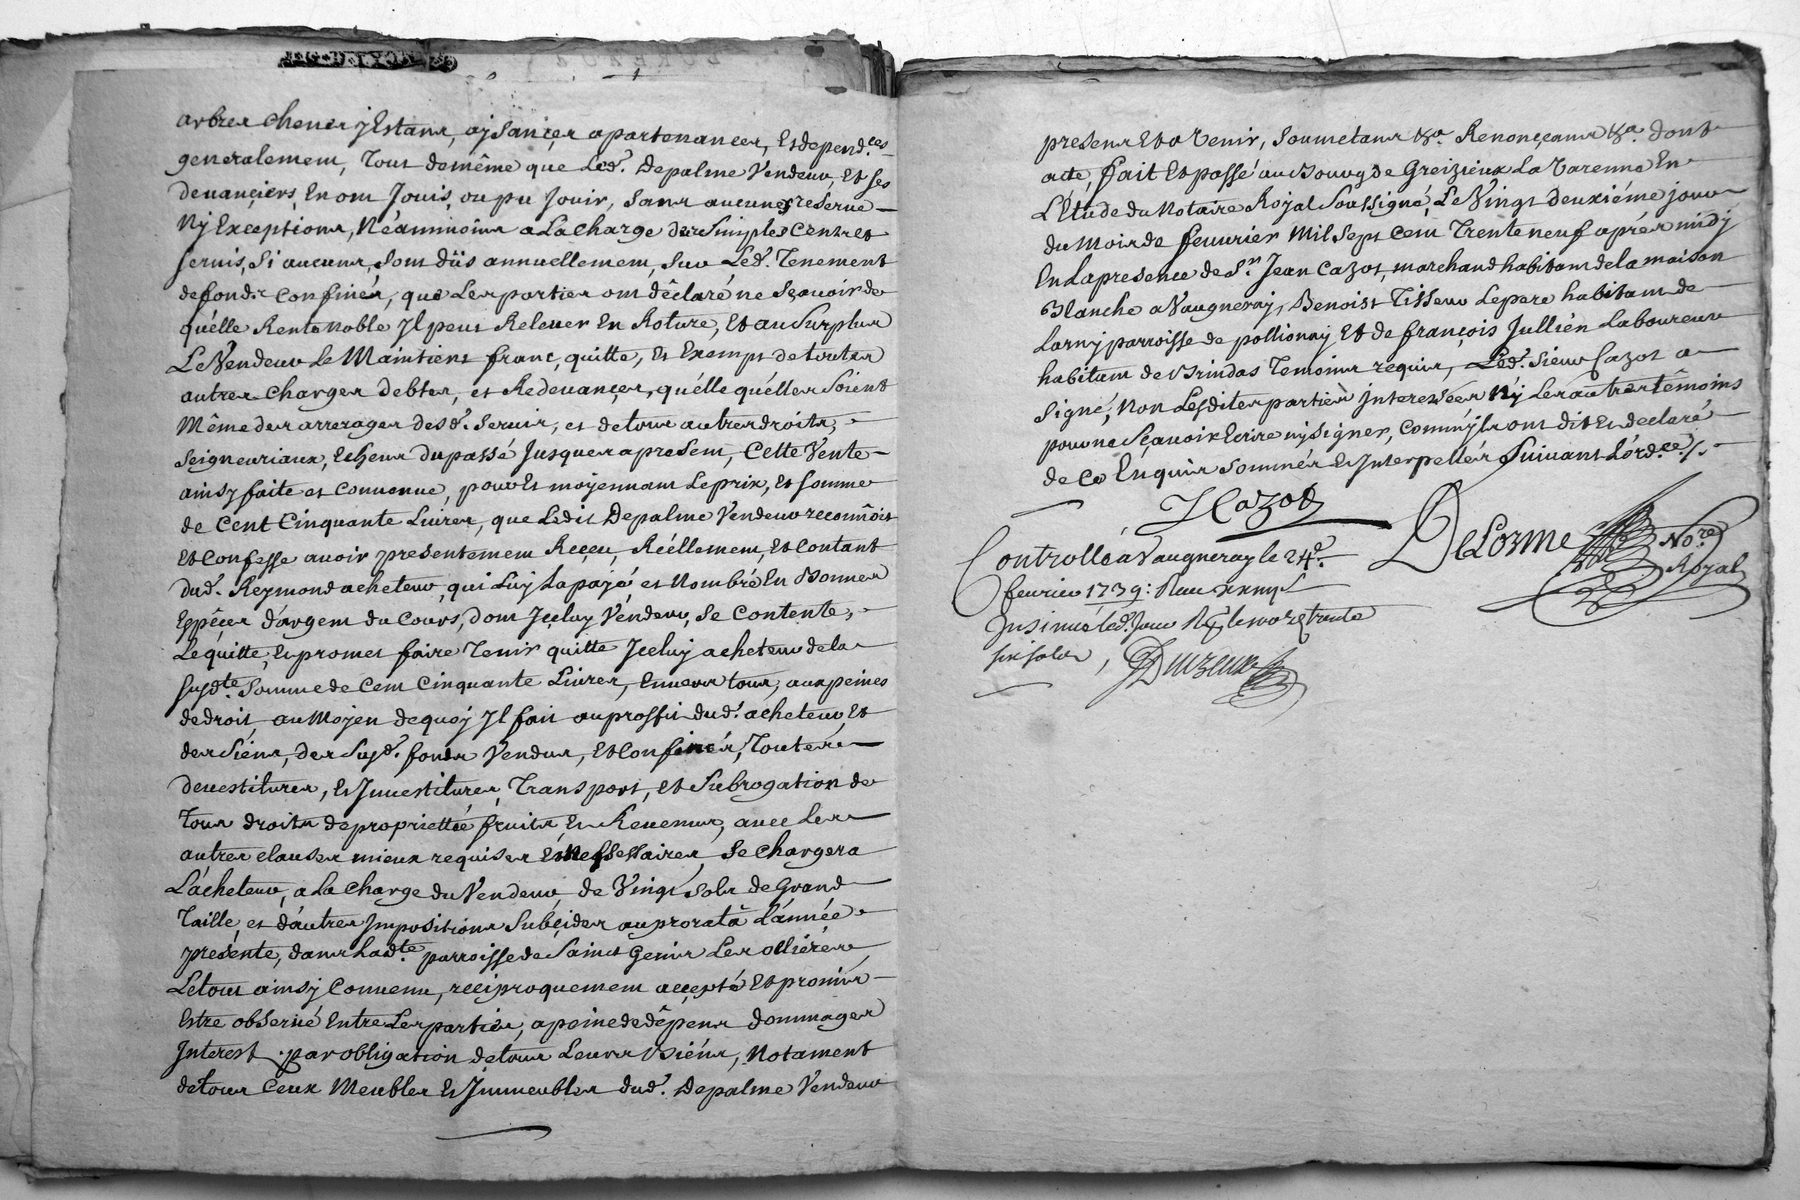 arbres chenes y Estans, aysances apartenances, Et depend.ces
generalement, Tout de même que Led. Depalme Vendeur, Et ses
devanciers, En ont Jouis, ou pu Jouir, sans aucunes reserue
Ny Exceptions, Néammoins a La charge des Simples Cens et
seruis, Si aucuns, Sont düs annuellement, Sur Led. Tenement
de fonds confinés, que Les parties ont dêclaré ne Sçauoir de
quélle Rente noble Il peut Releuer En Roture, Et au Surplus
Le Vendeur le Maintient franc, quitte, Et Exempt de toutes
autres charges debtes, et Redeuances, quélle quélles Soient
Même des arrerages desd. Seruis, et de tous autres droits,
Seigneuriaux, Echeus du passé Jusques apresent, Cette Vente
ainsy faite et Conuenue, pour Et moyennant Le prix, Et somme
de Cent Cinquante Liures, que Ledit Depalme Vendeur reconnoit
Et Confesse auoir presentement Reçeu, Réellement, Et Contant
dud. Reymond acheteur, qui Luy La payé, et Nombré En Bonnes
Espêces d'argent du Cours, dont Jceluy Vendeur, Se Contente,
Le quitte, Et promet faire Tenir quitte Jceluy acheteur de la
susd.te Somme de Cent Cinquante Liures, Enuers tous, aux peines
de droit, au Moyen de quoy Jl fait au proffit dud. acheteur, Et
des Siens, des Susd. fonds Vendus, Et Confinés, Toutes
deuestitures, Et Jnuestitures, Transport, et Subrogation de
Tous droits de proprietté fruits, Et Reuenus, auec Les
autres clauses mieux requises Et Nessessaires, Se chargera
L'acheteur, a La charge du Vendeur, de Vingt Sols de Grand
Taille, et d'autres Impositions Subçides au prorata L'année
presente, dans Lad.te parroisse de Saint Genis Les ollieres
Le tout ainsy Conuenu, reciproquement accepté Et promis
Estre obserué Entre Les parties, a peine de dêpens dommages
Interest par obligation de tous Leurs Biens, Notament
de tous Ceux Meubles Et Jmmeubles dud. Depalme Vendeur
presens Et a Venir, Soumetans &a. Renonçeans &a. dont
acte, fait Et passé au Bourg de Greizieux La Varenne En
L'Étude du Notaire Royal Soussigné, Le Vingt deuxiéme jour
du Mois de feuurier Mil Sept Cent Trente neuf aprés midy
En La presence de S.r Jean Cazot, marchand habitant de la maison
Blanche a Vaugneray, Benoist Tisseur Le pere habitant de
Larny parroisse de pollionay Et de françois Jullién Laboureur
habitant de Brindas Temoins requis, Led. Sieur Cazot a
Signé, Non Lesdites parties Interessées Ny Les autres têmoins
pour ne Sçauoir Ecrire ny Signer, Comm'jls ont dit Et declaré
de Ce Enquis Sommés Et Interpellés Suiuant L'ord.ce /.
J Cazot
DeLorme No.re
Royal
Controllé a Vaugneray le 24e.
feurier 1739:
Insinué led. jour trente
six sols,